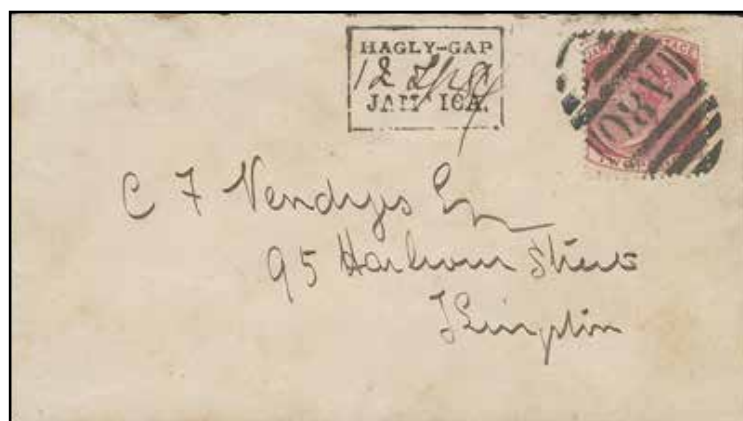 HAGLY-GAP
JAMAICA.
A80
C F Vendryes Esq
95 Harbour Street
Kingston